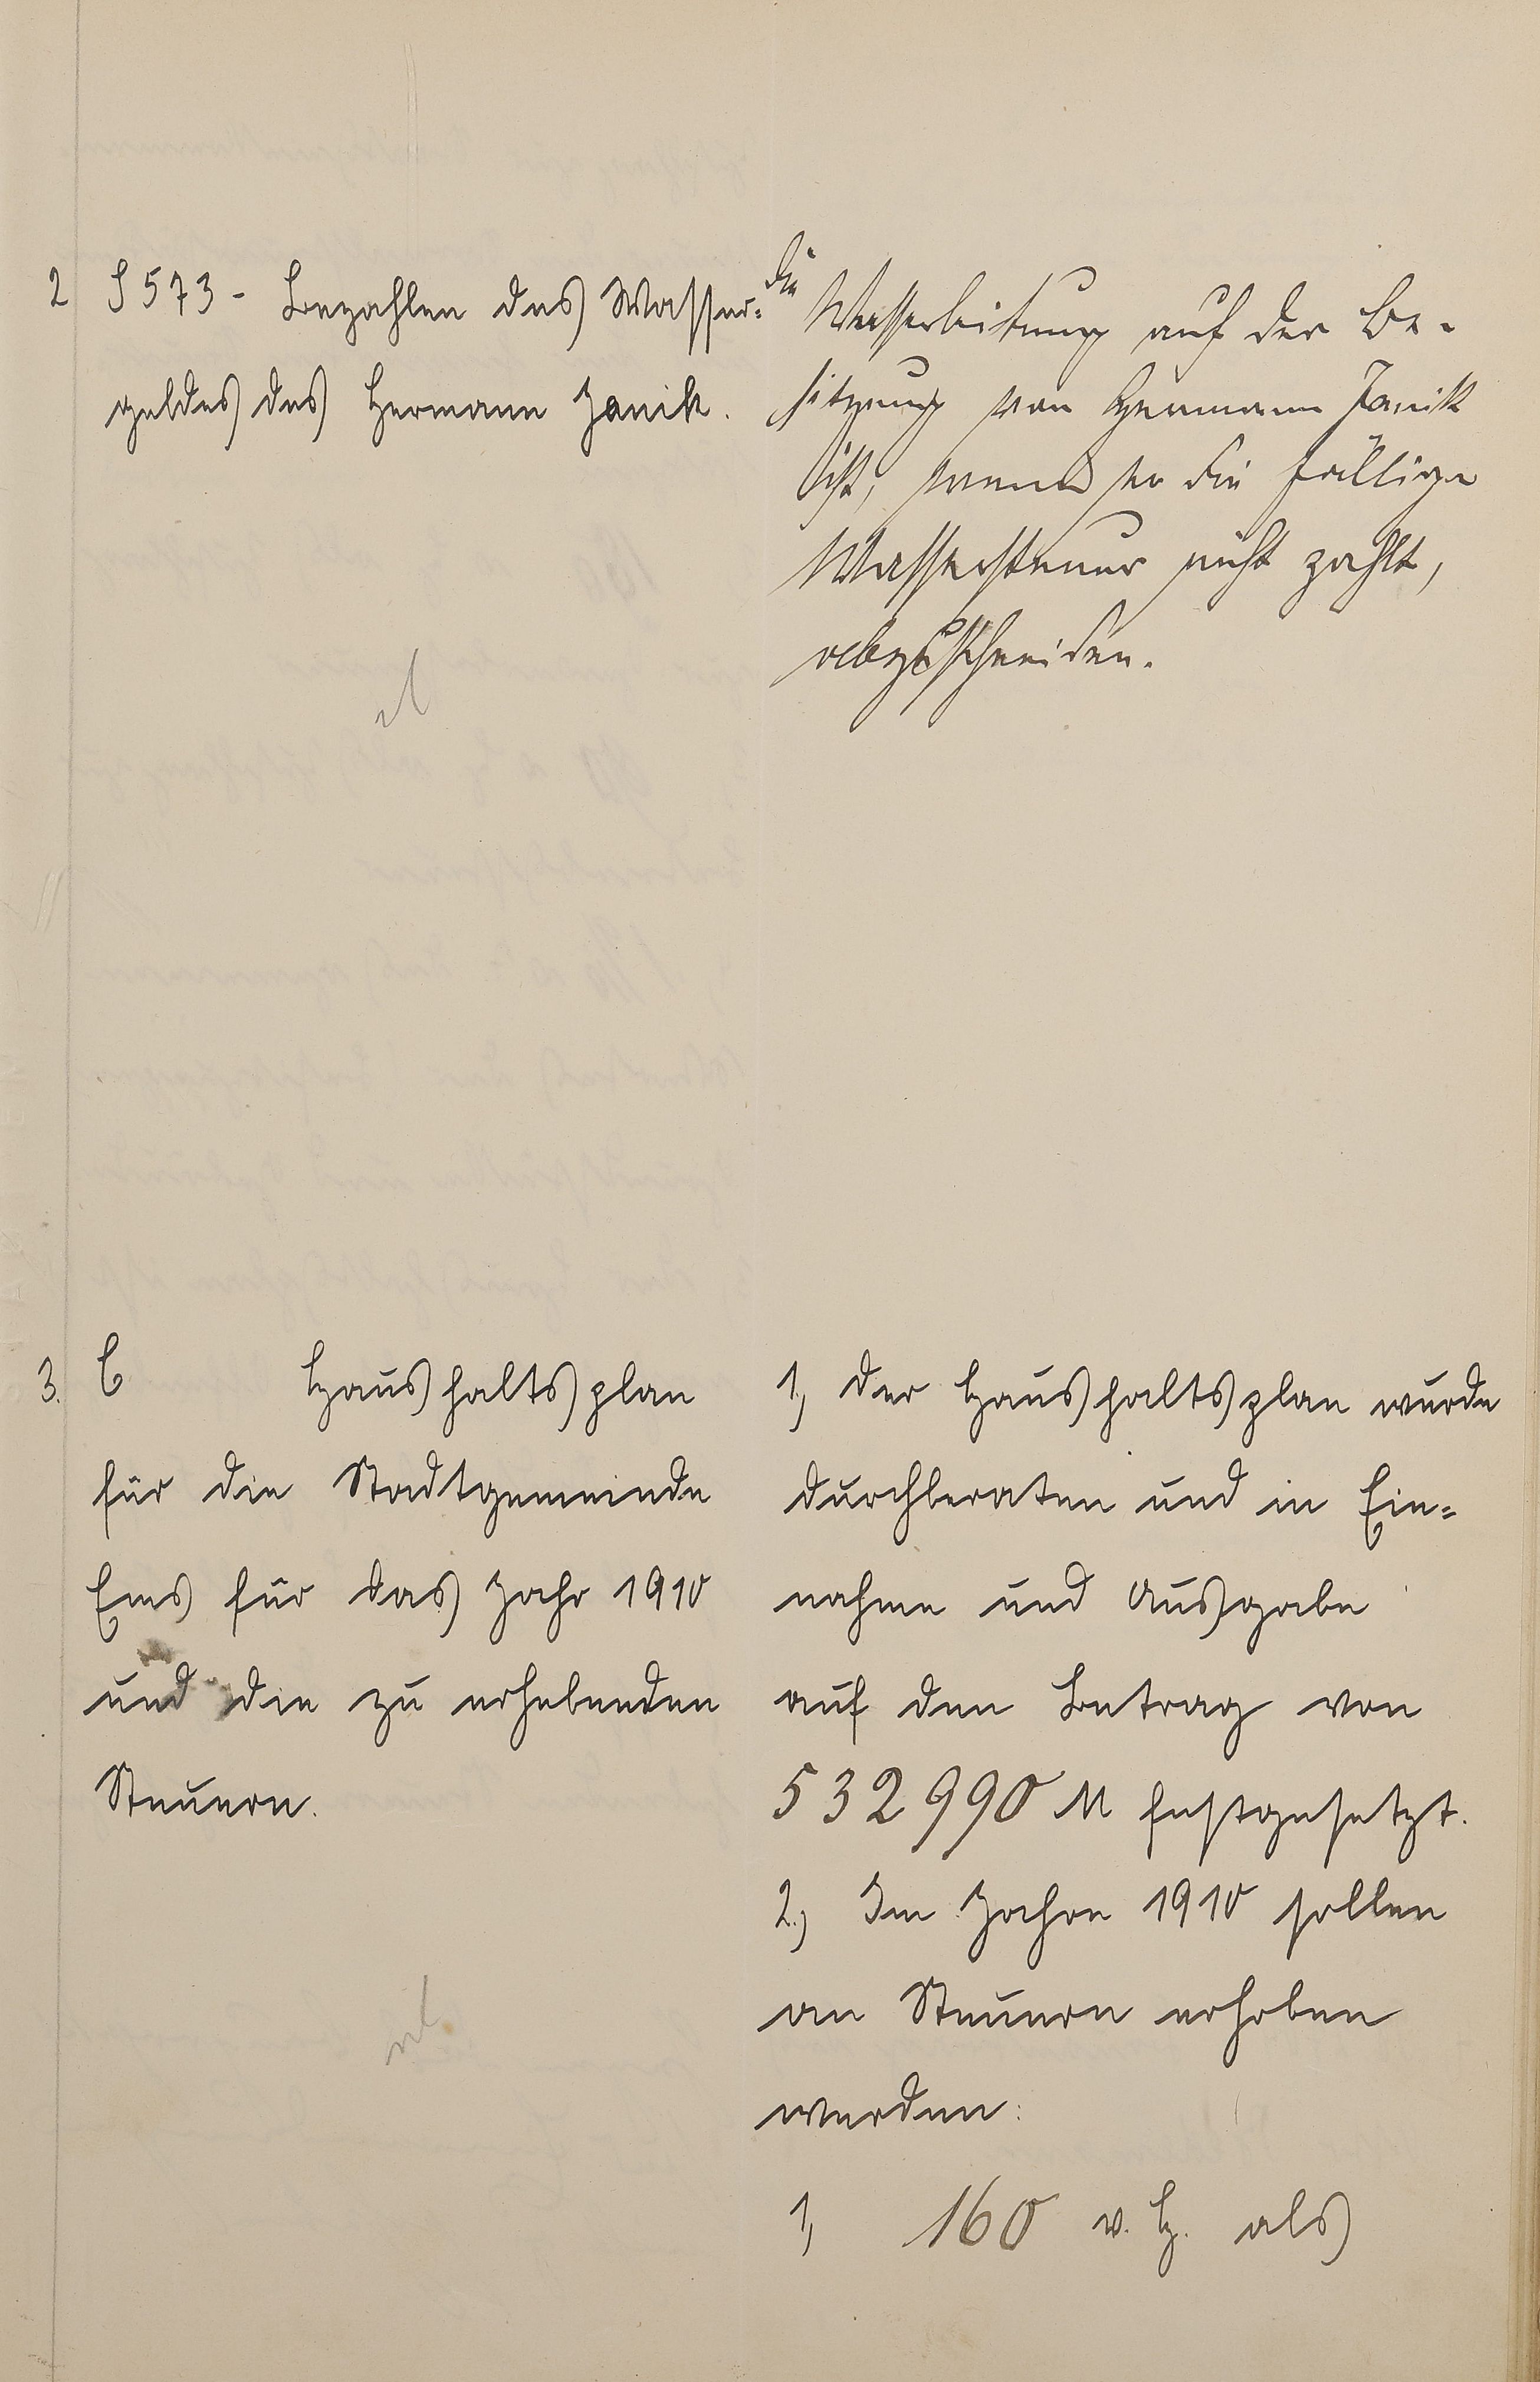 2 S 573 - Bezahlen des Wasser=
geldes des Hermann Janik.
die Wasserleitung auf der Be-
sitzung von Hermann Janik
ist, wenn er die fällige
Wassersteuer nicht zahlt,
abzuschneiden.
3. C Haushaltsplan
für die Stadtgemeinde
Ems für das Jahr 1910
und die zu erhebenden
Steuern.
1, Der Haushaltsplan wurde
durchberaten und in Ein=
nahme und Ausgabe
auf den Betrag von
532990 M festgesetzt.
2.) Im Jahre 1910 sollen
an Steuern erhoben
werden:
1, 160 v. H. als